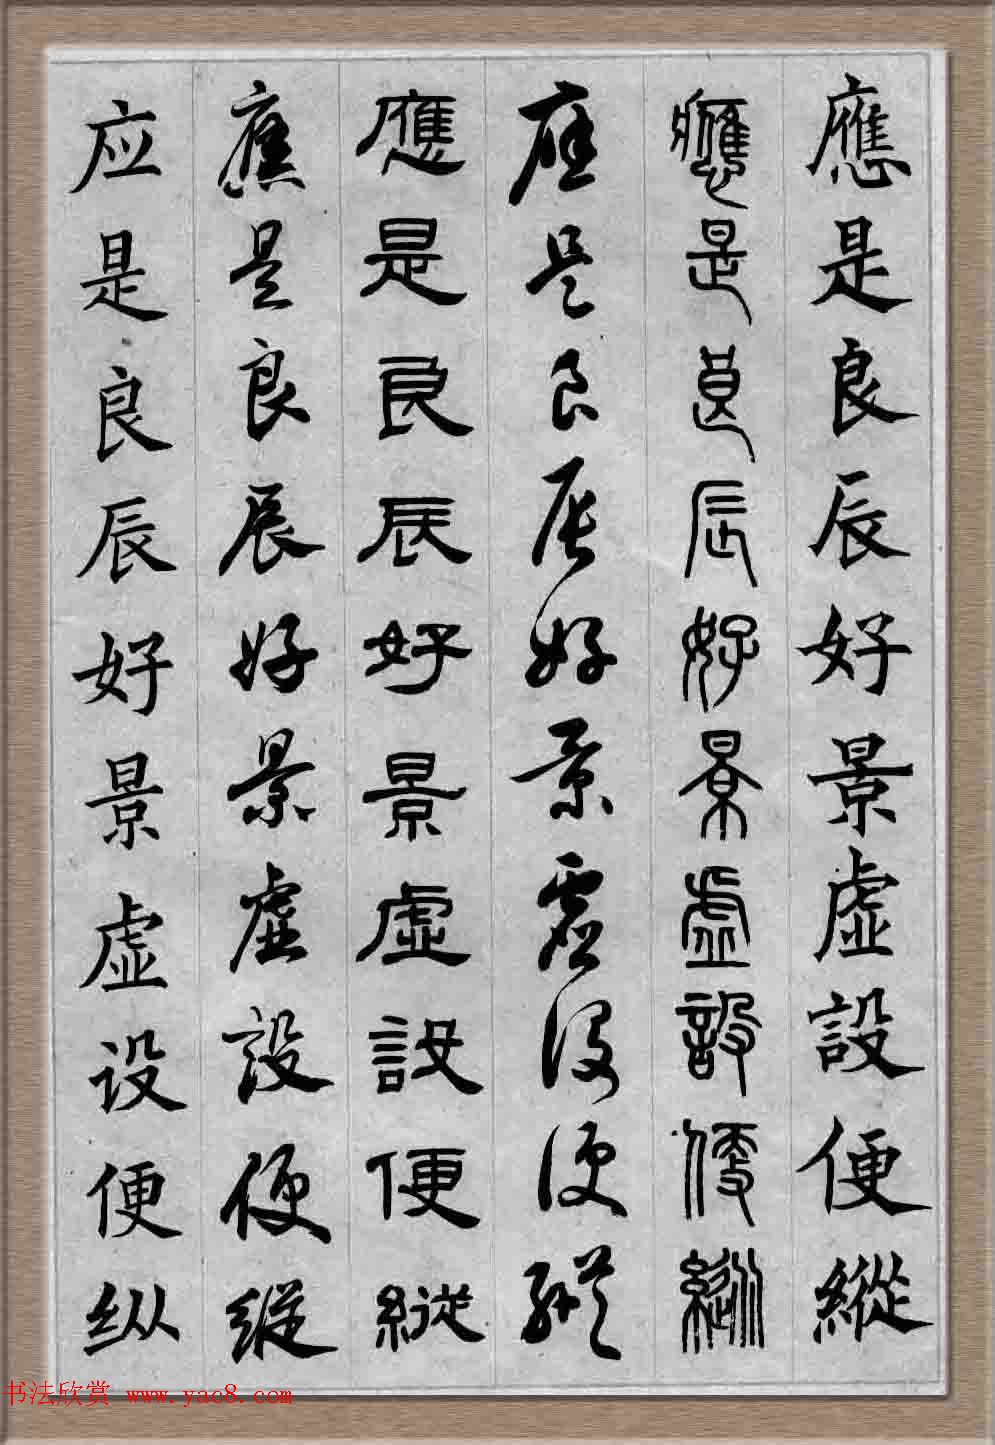 應是良辰好景虛設便縱
應是良辰好景虛設便縱
應是良辰好景虛設便縱
應是良辰好景虛設便縱
應是良辰好景虛設便縱
应是良辰好景虚设便纵
书法欣赏 www.yac8.com